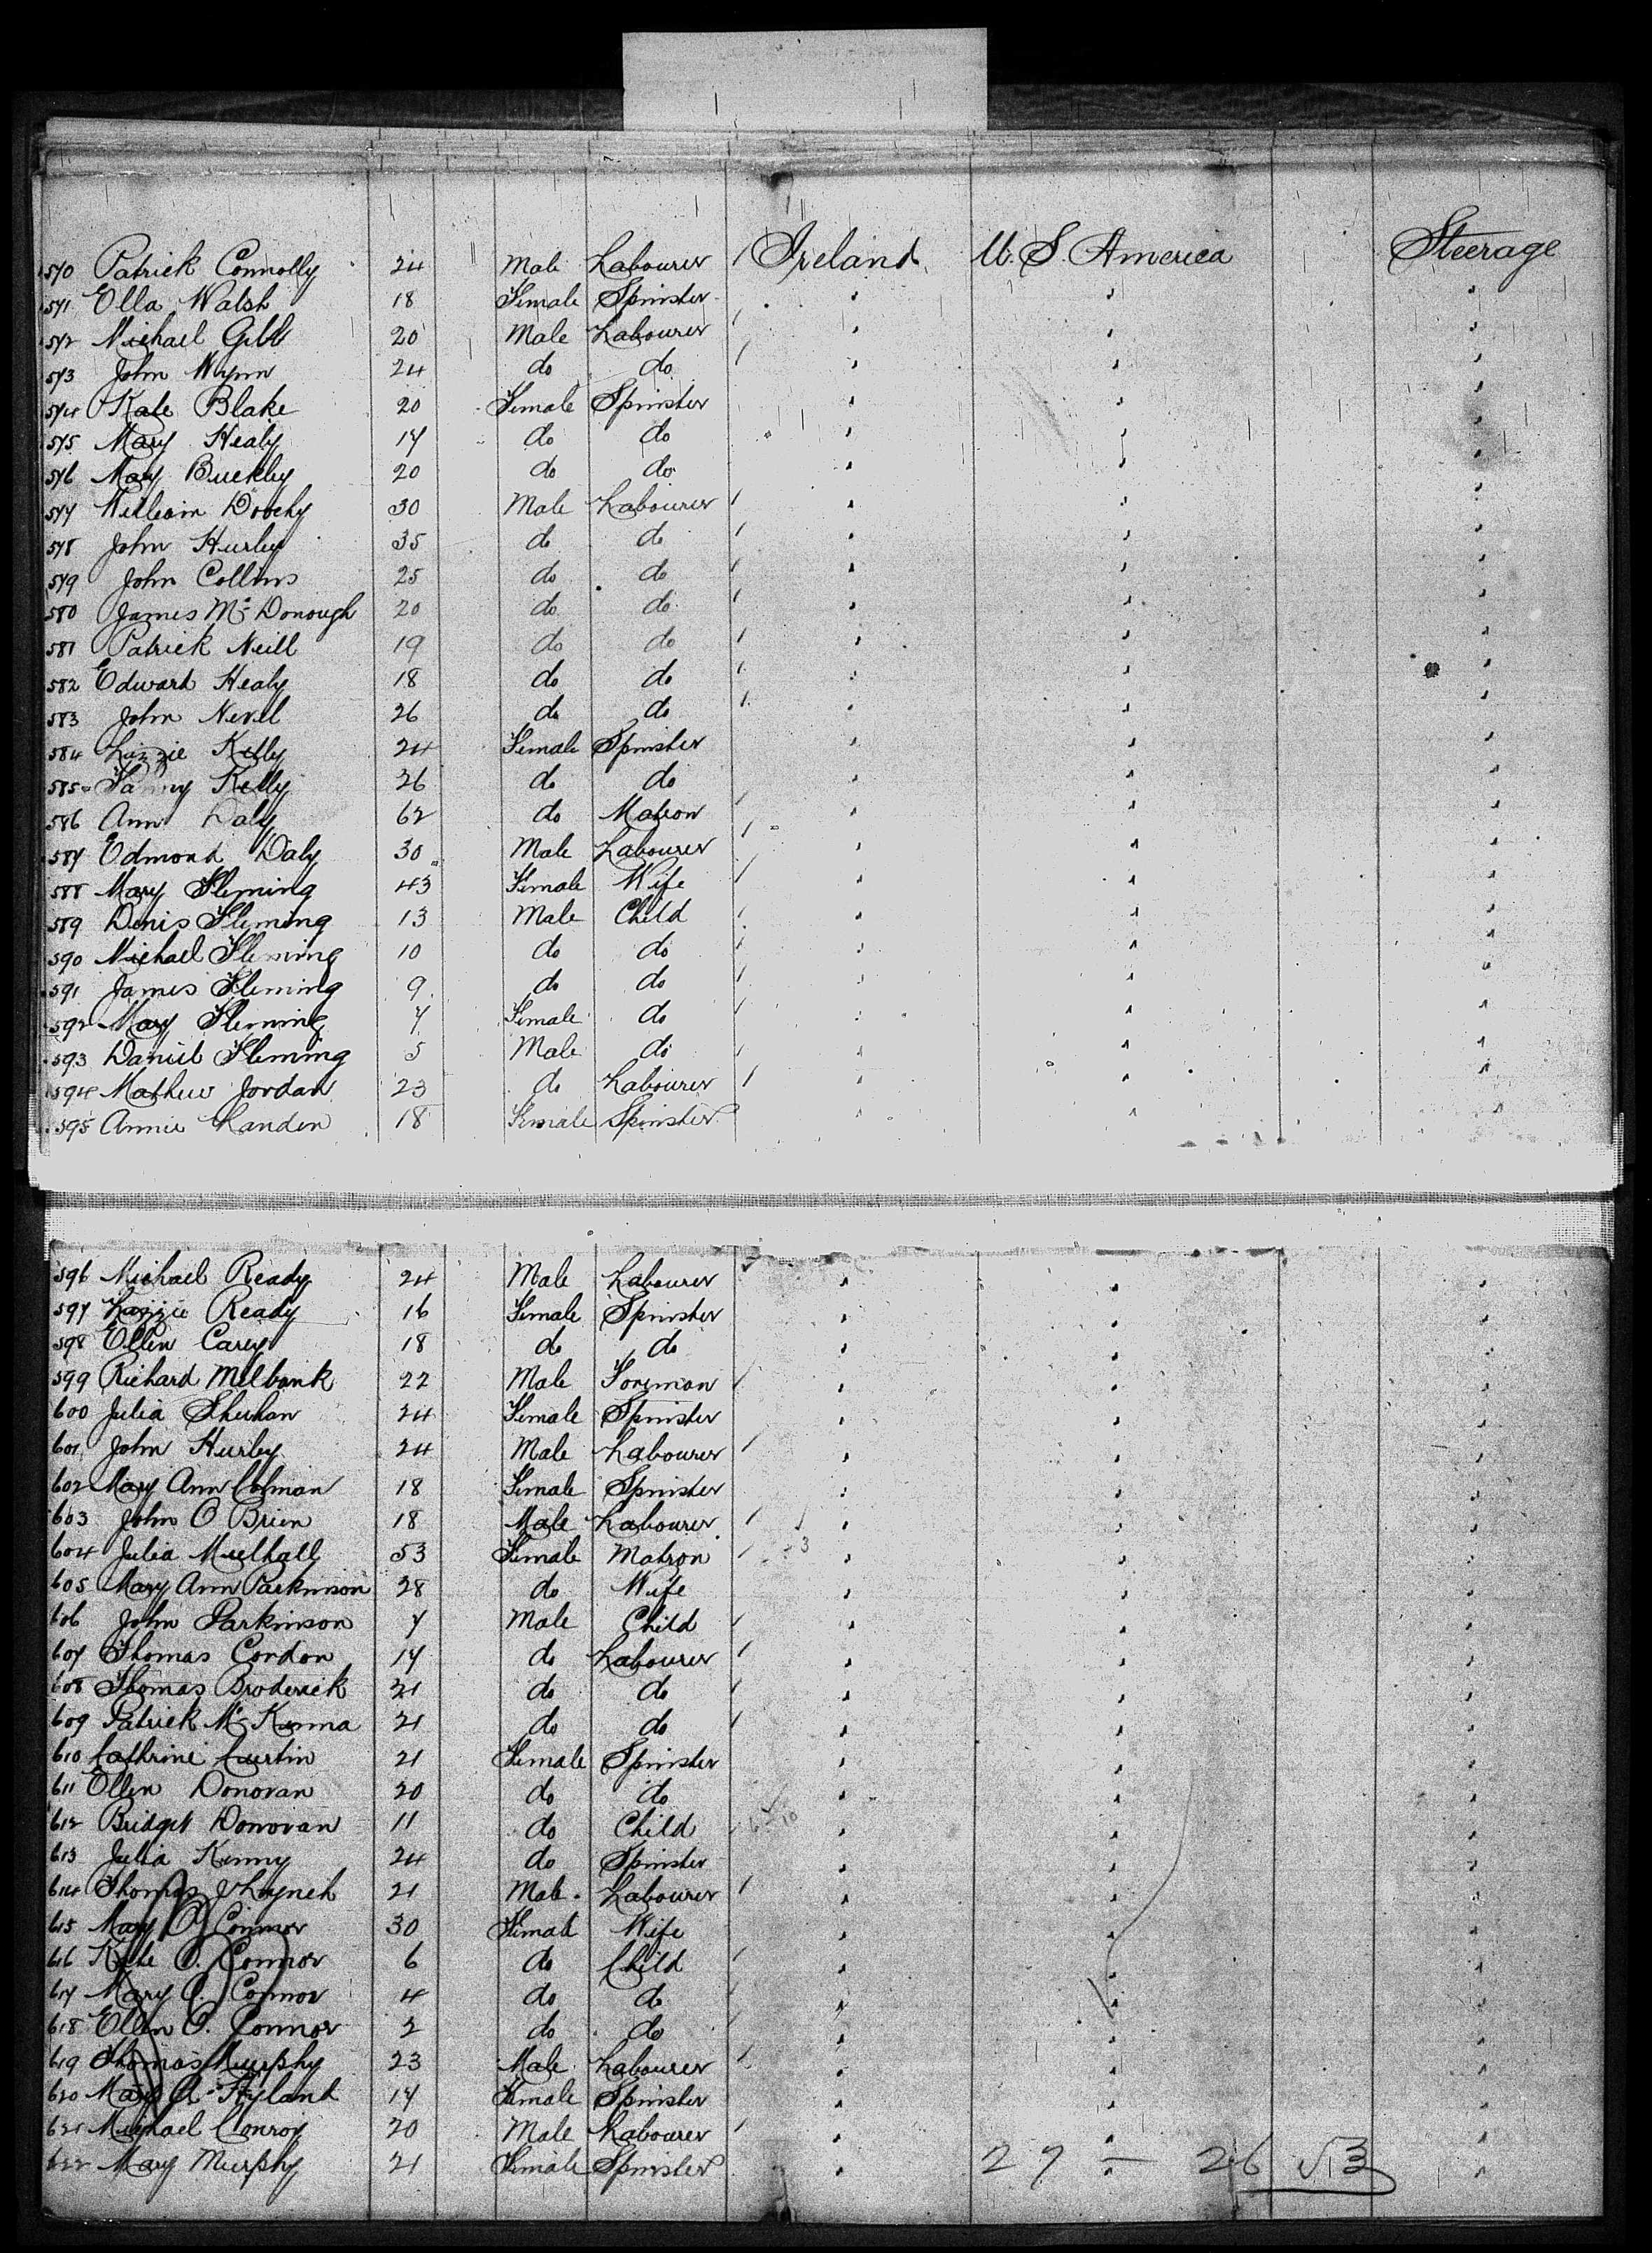 570 Patrick Connolly 24 Male Labourer Ireland U. S. America Steerage
571 Ella Walsh 18 Female Spinster " " "
572 Michael Gibb 20 Male Labourer " " "
573 John Wynn 24 do do " " "
574 Kate Blake 20 Female Spinster " " "
575 Mary Healy 17 do do " " "
576 Mary Buckley 20 do do " " "
577 William Doochy 30 Male Labourer " " "
578 John Hurley 35 do do " " "
579 John Collins 25 do do " " "
580 James McDonough 20 do do " " "
581 Patrick Neill 19 do do " " "
582 Edward Healy 18 do do " " "
583 John Nevil 26 do do " " "
584 Lizzie Kelly 24 Female Spinster " " "
585 Fanny Kelly 26 do do " " "
586 Ann Daly 62 do Matron " " "
587 Edmond Daly 30 Male Labourer " " "
588 Mary Fleming 43 Female Wife " " "
589 Denis Fleming 13 Male Child " " "
590 Michael Fleming 10 do do " " "
591 James Fleming 9 do do " " "
592 Mary Fleming 7 Female do " " "
593 Daniel Fleming 5 Male do " " "
594 Mathew Jordan 23 do Labourer " " "
595 Annie Landen 18 Female Spinster " " "
596 Michael Ready 24 Male Labourer " " "
597 Lizzie Ready 16 Female Spinster " " "
598 Ellen Carey 18 do do " " "
599 Richard Milbank 22 Male Foreman " " "
600 Julia Sheehan 24 Female Spinster " " "
601 John Hurley 24 Male Labourer " " "
602 Mary Ann Colman 18 Female Spinster " " "
603 John O Brien 18 Male Labourer " " "
604 Julia Mulhall 53 Female Matron " " "
605 Mary Ann Parkinson 28 do Wife " " "
606 John Parkinson 7 Male Child " " "
607 Thomas Condon 17 do Labourer " " "
608 Thomas Broderick 21 do do " " "
609 Patrick McKenna 21 do do " " "
610 Cathrine Curtin 21 Female Spinster " " "
611 Ellen Donovan 20 do do " " "
612 Bridget Donovan 11 do Child " " "
613 Julia Kenny 24 do Spinster " " "
614 Thomas J Lynch 21 Male Labourer " " "
615 Mary O Connor 30 Female Wife " " "
616 Kate O. Connor 6 do Child " " "
617 Mary O. Connor 4 do do " " "
618 Ellen O. Connor 2 do do " " "
619 Thomas Murphy 23 Male Labourer " " "
620 Mary A Hyland 17 Female Spinster " " "
621 Michael Conroy 20 Male Labourer " " "
622 Mary Murphy 21 Female Spinster " " "
27 — 26